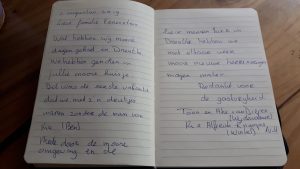 2 augustus 2019
Lieve familie
Wat hebben wij mooie
dagen gehad in Drenthe.
We hebben genoten in
jullie mooie huisje.
Dit was de eerste vakantie
dat we met z'n
waren zonder de man van
Ria (Ben)
Mede door de mooie
omgeving en de
lieve mensen hier in
Drenthe hebben we
met elkaar weer
mooie nieuwe herinneringen
mogen maken.
Bedankt voor
de gastvrijheid
Toon en
Ria & Alfred